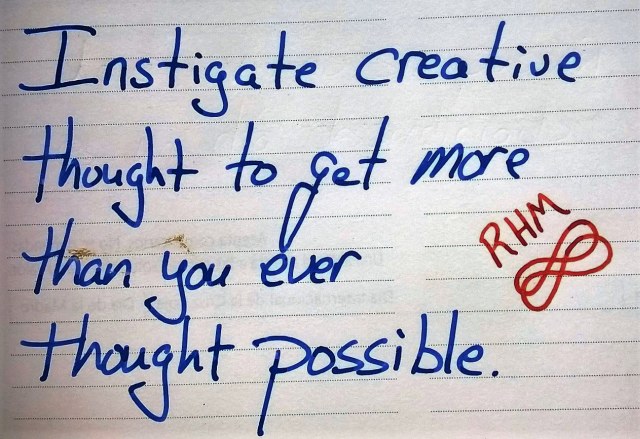 Instigate creative
thought to get more
than you ever
RHM
thought possible.